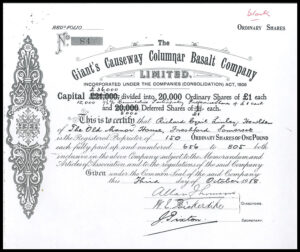 black
REGD FOLIO
ORDINARY SHARES
No 84
The
Giant's Causeway Columnar Basalt Company
LIMITED.
INCORPORATED UNDER THE COMPANIES (CONSOLIDATION) ACT, 1908
£36000
Capital £21,000; divided into 20,000 Ordinary Shares of £1 each
15,000 of £1 each
and 20,000 Deferred Shares of 1/- each
This is to certify that Richard Cyril
The Old Manor House, Freshford Somerset
is the Registered Proprietor of 150 ORDINARY SHARES OF ONE POUND
each fully paid up and numbered 656 to 805 both
inclusive in the above Company subject to the Memorandum and
Articles of Association and to the regulations of the said Company
Given under the Common Seal of the said Company
this Third day of October 1918
DIRECTORS
SECRETARY